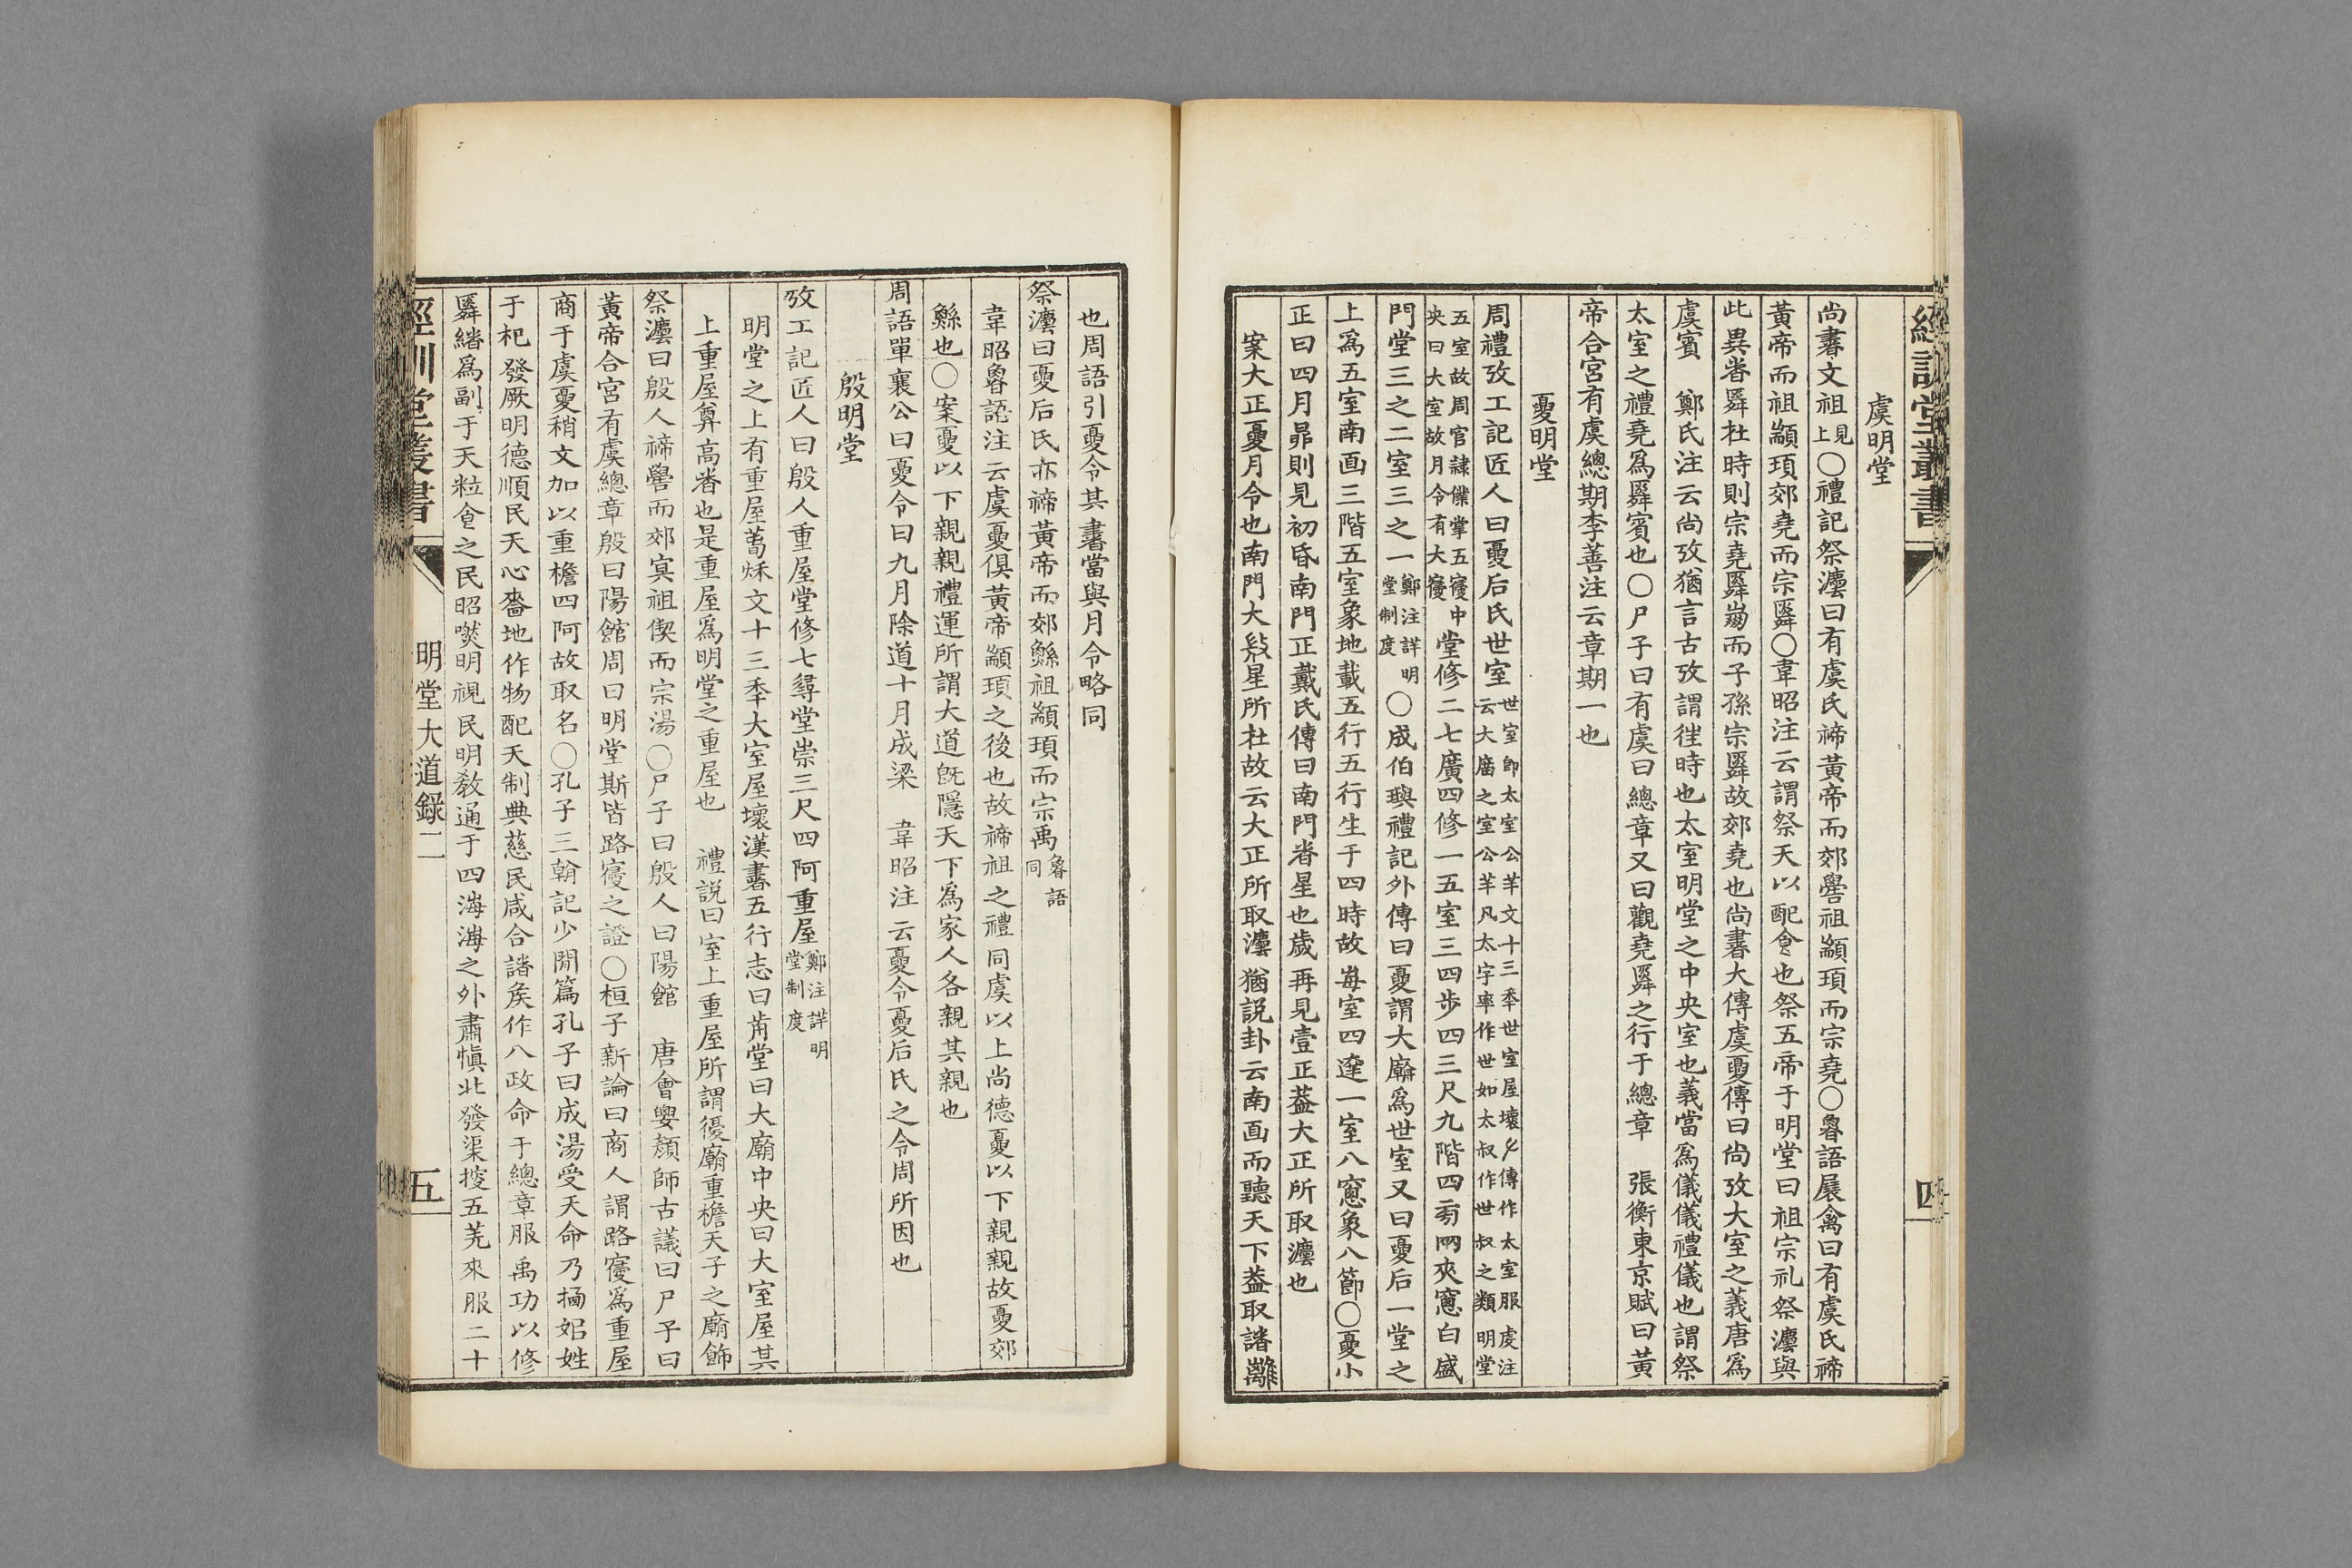 經訓堂叢書
四
虞明堂
尚書文祖見上○禮記祭灋曰有虞氏禘黃帝而郊嚳祖顓頊而宗堯○魯語展禽曰有虞氏禘
黃帝而祖顓頊郊堯而宗舜○韋昭注云謂祭天以配食也祭五帝于明堂曰祖宗礼祭灋與
此異者舜杜時則宗堯舜崩而子孫宗舜故郊堯也尚書大傳虞夏傳曰尚攷大室之義唐爲
虞賓　鄭氏注云尚攷猶言古攷謂徃時也太室明堂之中央室也義當爲儀儀禮儀也謂祭
太室之禮堯爲舜賓也○尸子曰有虞曰總章又曰觀堯舜之行于總章　張衡東京賦曰黃
帝合宮有虞總期李善注云章期一也
夏明堂
周禮攷工記匠人曰夏后氏世室世室卽太室公羊文十三秊世室屋壞𠂇傳作太室服虔注云大廟之室公羊凡太字率作世如太叔作世叔之類明堂
五室故周官隷僕掌五寑中央曰大室故月令有大寑堂修二七廣四修一五室三四步四三尺九階四㫄㒳夾窻白盛
門堂三之二室三之一鄭注詳明堂制度○成伯璵禮記外傳曰夏謂大廟爲世室又曰夏后一堂之
上爲五室南面三階五室象地載五行五行生于四時故每室四達一室八窻象八節○夏小
正曰四月昴則見初昏南門正戴氏傳曰南門者星也歲再見壹正葢大正所取灋也
案大正夏月令也南門大㷠星所杜故云大正所取灋猶説卦云南面而聽天下葢取諸離
也周語引夏令其書當與月令略同
祭灋曰夏后氏亦禘黃帝而郊鯀祖顓頊而宗禹魯語同
韋昭魯語注云虞夏俱黃帝顓頊之後也故禘祖之禮同虞以上尚德夏以下親親故夏郊
鯀也○案夏以下親親禮運所謂大道旣隱天下爲家人各親其親也
周語單襄公曰夏令曰九月除道十月成梁　韋昭注云夏令夏后氏之令周所因也
殷明堂
攷工記匠人曰殷人重屋堂修七尋堂崇三尺四阿重屋鄭注詳明堂制度
明堂之上有重屋萅秌文十三秊大室屋壞漢書五行志曰前堂曰大廟中央曰大室屋其
上重屋尊高者也是重屋爲明堂之重屋也　禮説曰室上重屋所謂復廟重檐天子之廟飾
祭灋曰殷人禘嚳而郊冥祖偰而宗湯○尸子曰殷人曰陽館　唐會要顏師古議曰尸子曰
黃帝合宮有虞總章殷曰陽館周曰明堂斯皆路寑之證○桓子新論曰商人謂路寑爲重屋
商于虞夏稍文加以重檐四阿故取名○孔子三朝記少閒篇孔子曰成湯受天命乃㨄姒姓
于杞發厥明德順民天心嗇地作物配天制典慈民咸合諸矦作八政命于總章服禹功以修
舜緖爲副于天粒食之民昭㷼明視民明敎通于四海海之外肅愼北發渠搜五羌來服二十
經訓堂叢書
明堂大道錄二
五